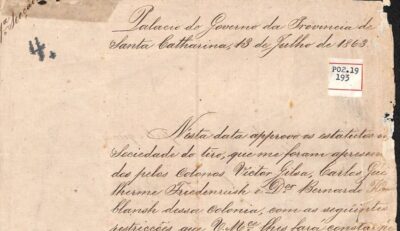 1ª Secção
4.
Palacio do Governo da Provincia de
Santa Catharina, 13 de Julho de 1863.
P02.19
193
Nesta data approvo os estatutos
Sociedade do tiro, que me foram apresen
dos pelos colonos Victor Gilsa, Carlos Gui
lherme Friedenreish e Dor Bernardo
dessa colonia, com as seguintes
restricções que V. Mce lhes fará constar